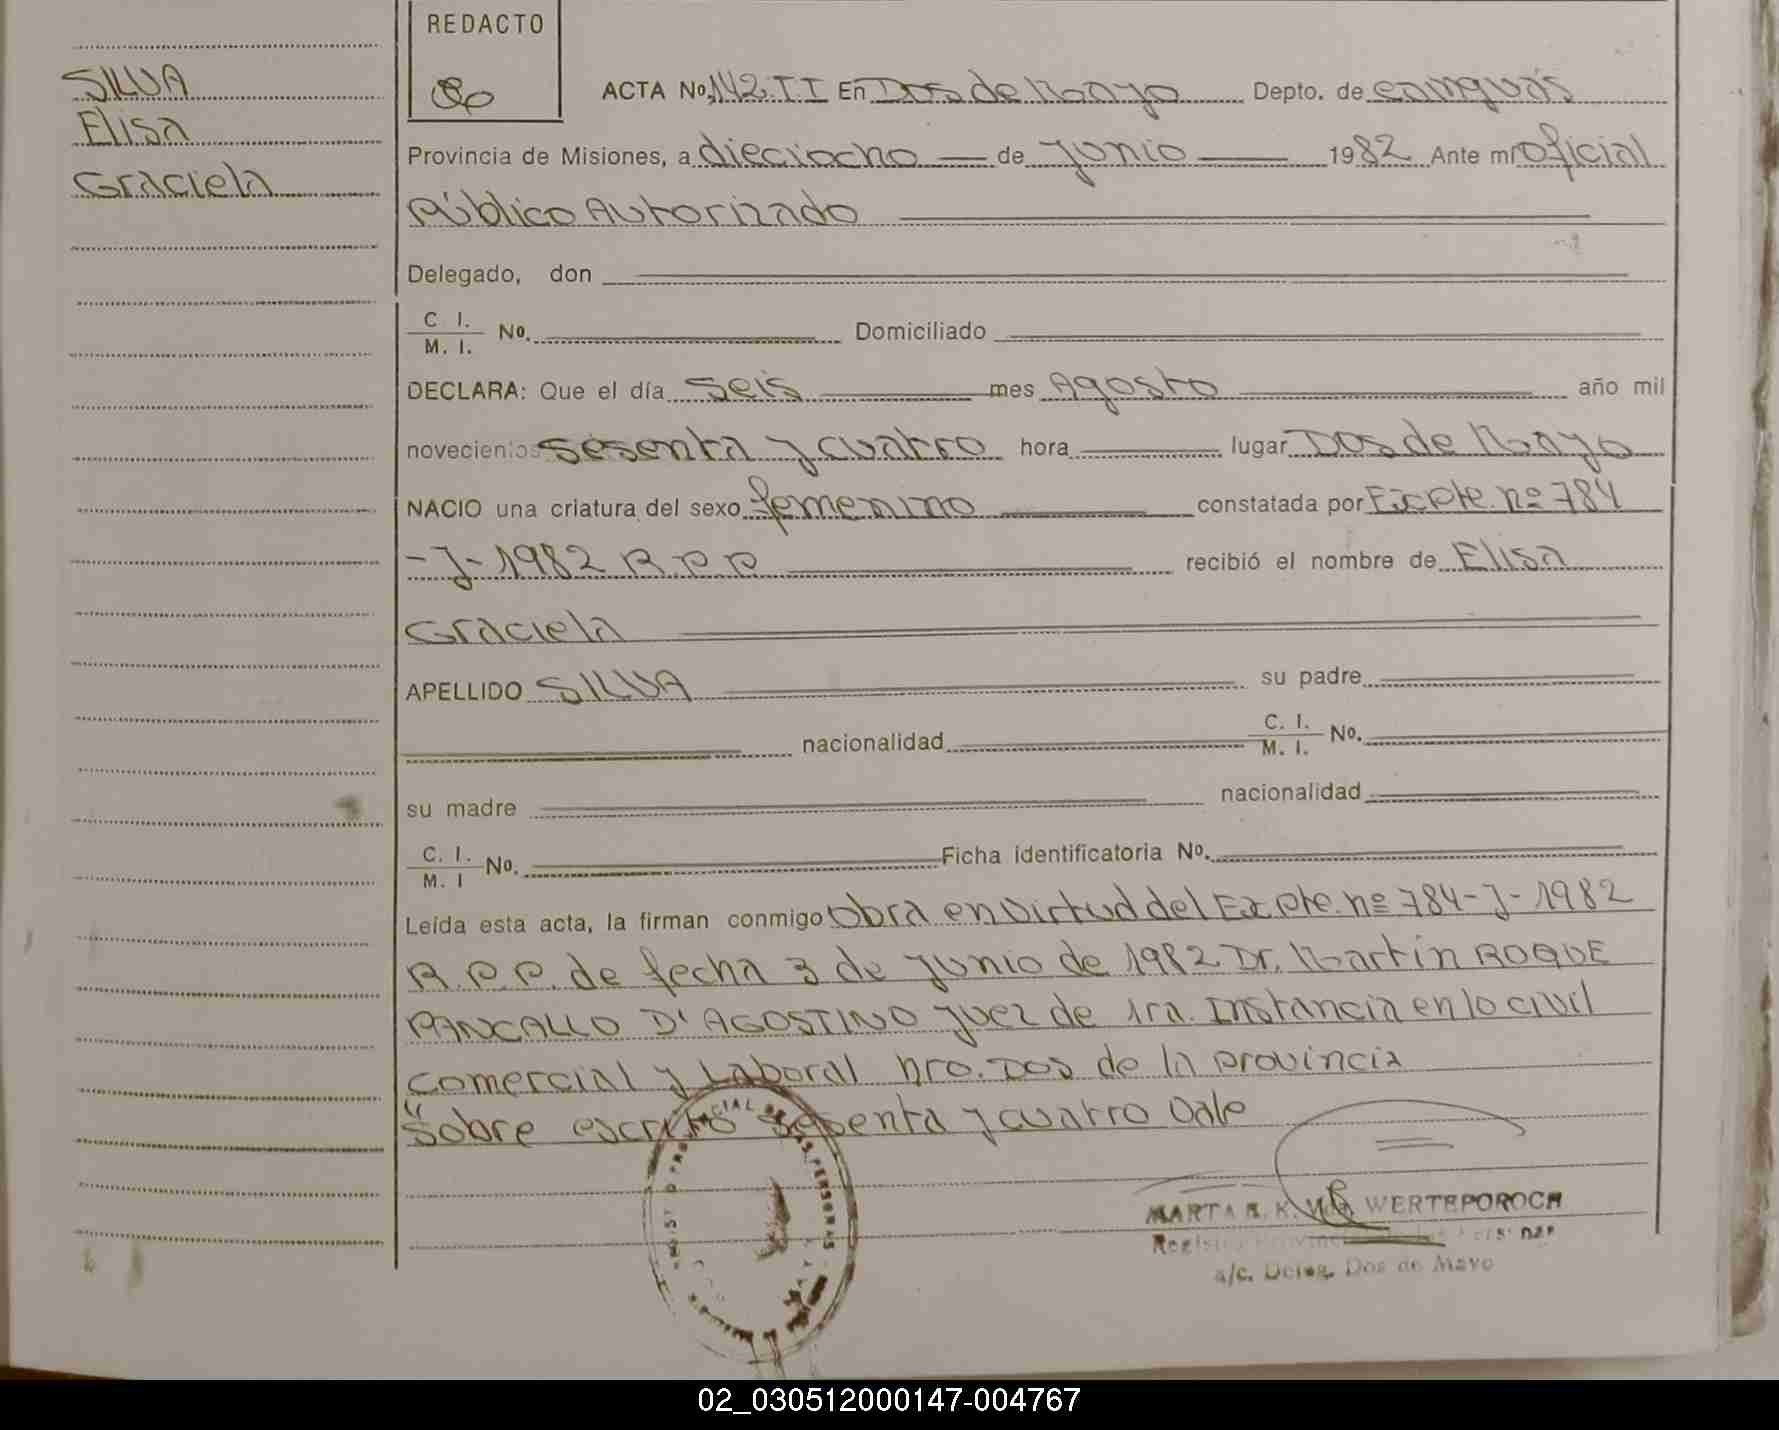 SILVA
Elisa
Graciela
REDACTO
ACTA No. 142 II En Dos de Mayo Depto. de Cainguás
Provincia de Misiones, a dieciocho de junio 1982 Ante mí oficial
Público Autorizado
Delegado, don
C. I. / M. I. No. Domiciliado
DECLARA: Que el día seis mes Agosto año mil
novecientos sesenta y cuatro hora lugar Dos de Mayo
NACIO una criatura del sexo femenino constatada por Expte. nº 784
-J-1982 R.P.P recibió el nombre de Elisa
Graciela
APELLIDO SILVA su padre
nacionalidad C. I. / M. I. No.
su madre nacionalidad
C. I. / M. I No. Ficha identificatoria No.
Leída esta acta, la firman conmigo Obra en virtud del Expte. nº 784-J-1982
R.P.P. de fecha 3 de junio de 1982 Dr. Martín ROQUE
PANCALLO D'AGOSTINO juez de 1ra. Instancia en lo civil
comercial y Laboral nro. Dos de la provincia
"Sobre escrito sesenta y cuatro Vale
MARTA R. K. WERTEPOROCH
a/c. Deleg. Dos de Mayo
02_030512000147-004767